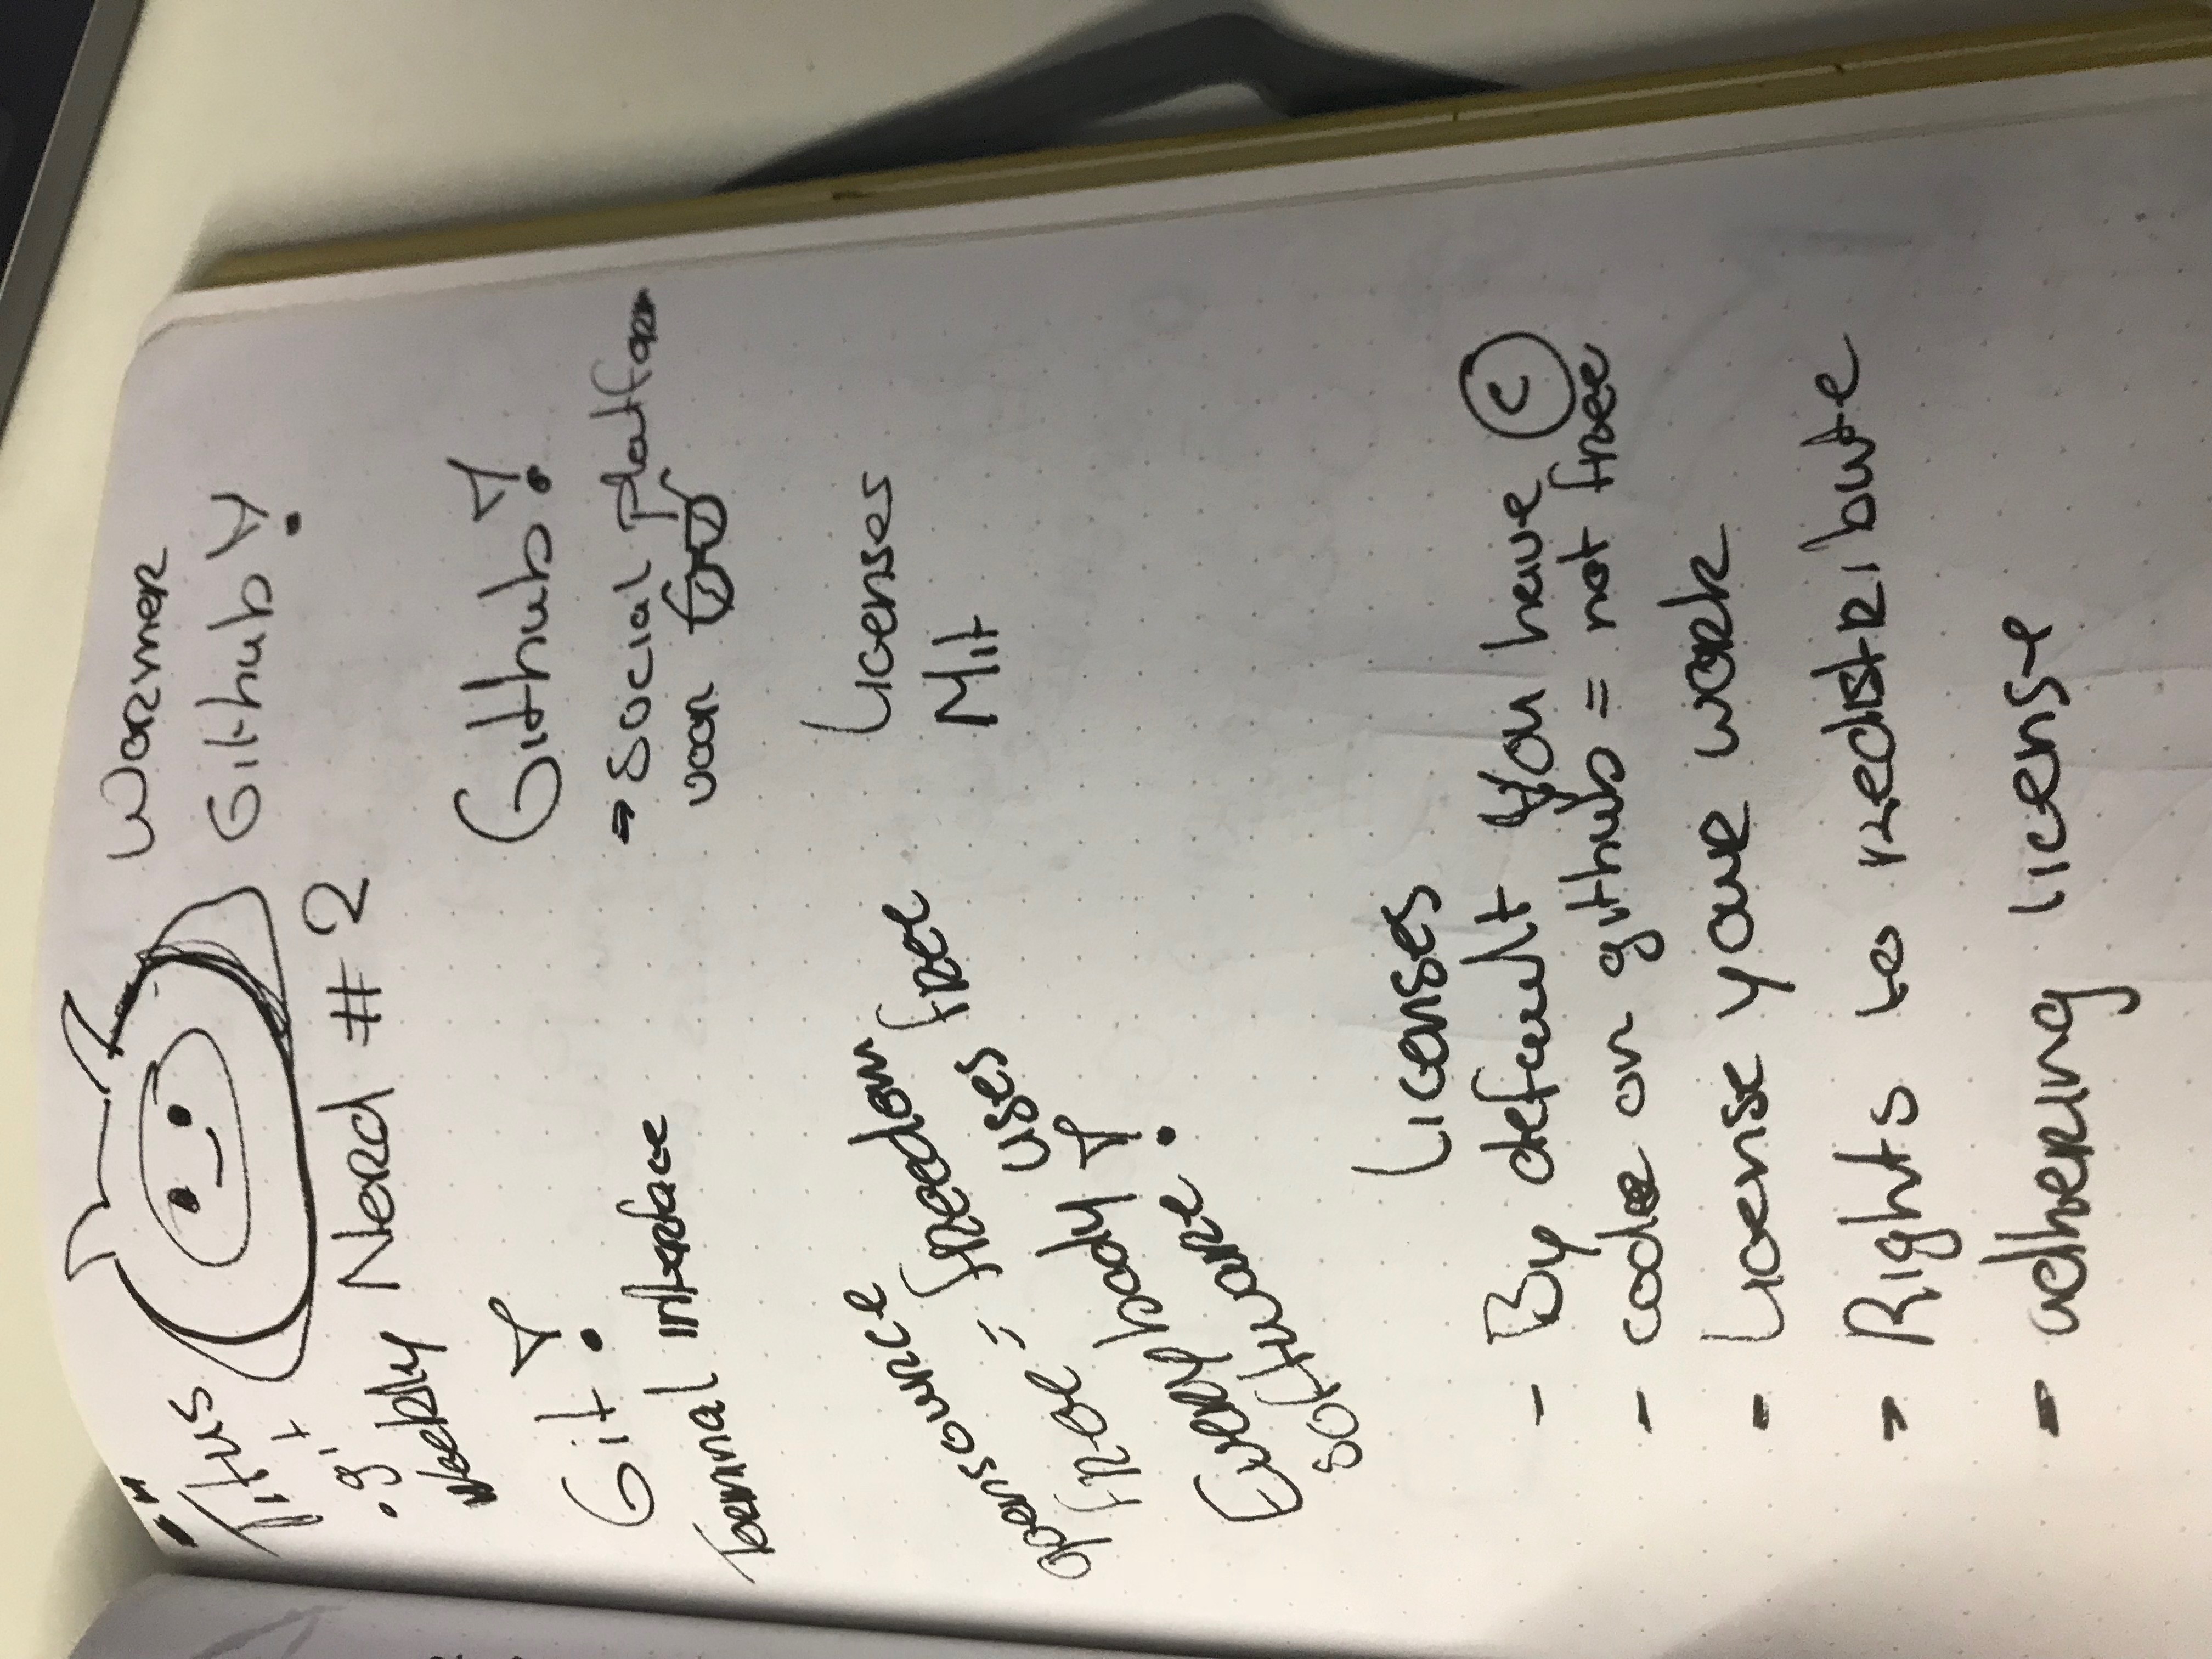 Titus
Wormer
.git
Github!
Weekly Nerd #2
Git!
Terminal interface
Github!
→ Social platform
voor
opensource
free = freedom
Everybody uses free
software!
Licenses
Mit
Licenses
- By default you have ©
- code on github = not free
- License your work
- Rights to redistribute
- adhering license